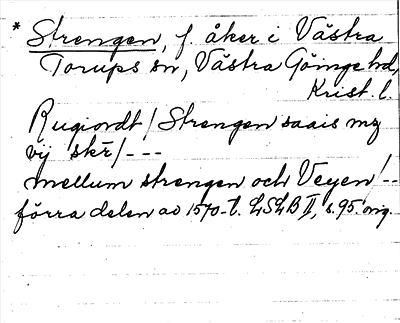 * Strengen, f. åker i Västra
Torups sn, Västra Göinge hd,
Krist. l.
Rugiordt / Strengen saais mz
vij skr̄ / - - -
mellum strengen och Veyen / - -
förra delen av 1570-t. LSLB II, s. 95. orig.